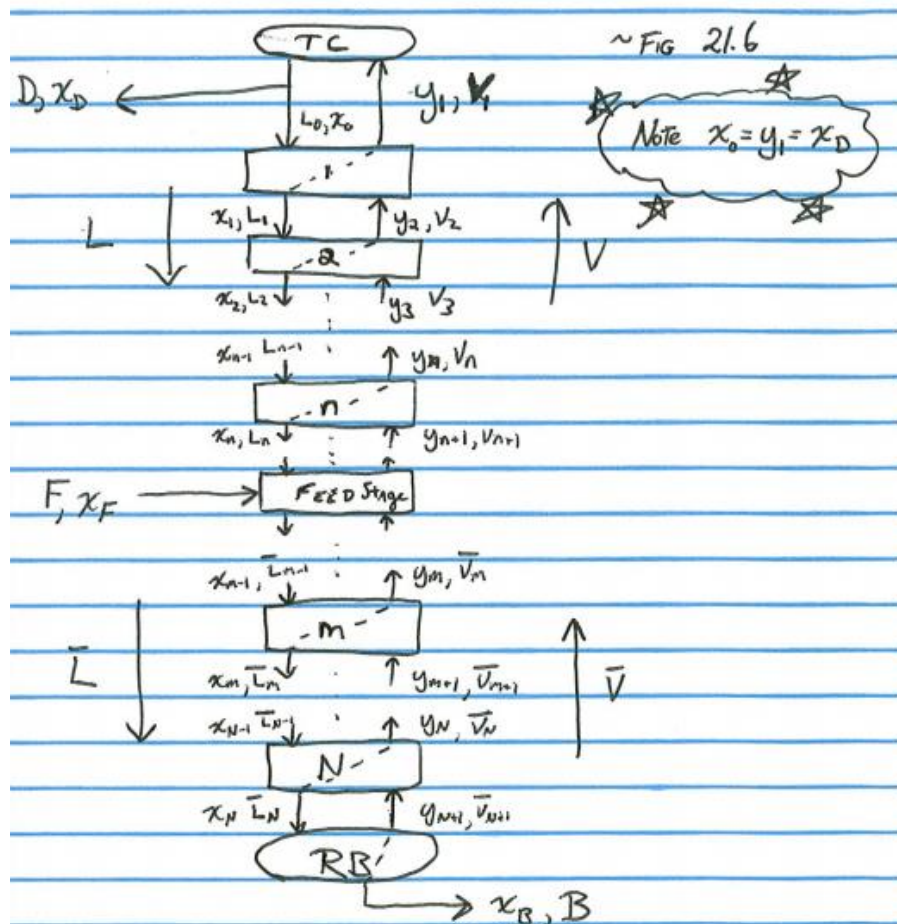 TC
~ FIG 21.6
D, x_D
y₁, V₁
L₀, x₀
Note x₀ = y₁ = x_D
1
x₁, L₁
y₂, V₂
L
V
2
x₂, L₂
y₃ V₃
xₙ₋₁ Lₙ₋₁
yₙ, Vₙ
n
xₙ, Lₙ
yₙ₊₁, Vₙ₊₁
F, x_F
FEED Stage
xₙ₋₁, L̄ₘ₋₁
yₘ, V̄ₘ
m
L̄
V̄
xₘ, L̄ₘ
yₘ₊₁, V̄ₘ₊₁
x_N-1 L̄_N-1
y_N, V̄_N
N
x_N L̄_N
y_N+1, V̄_N+1
RB
x_B, B